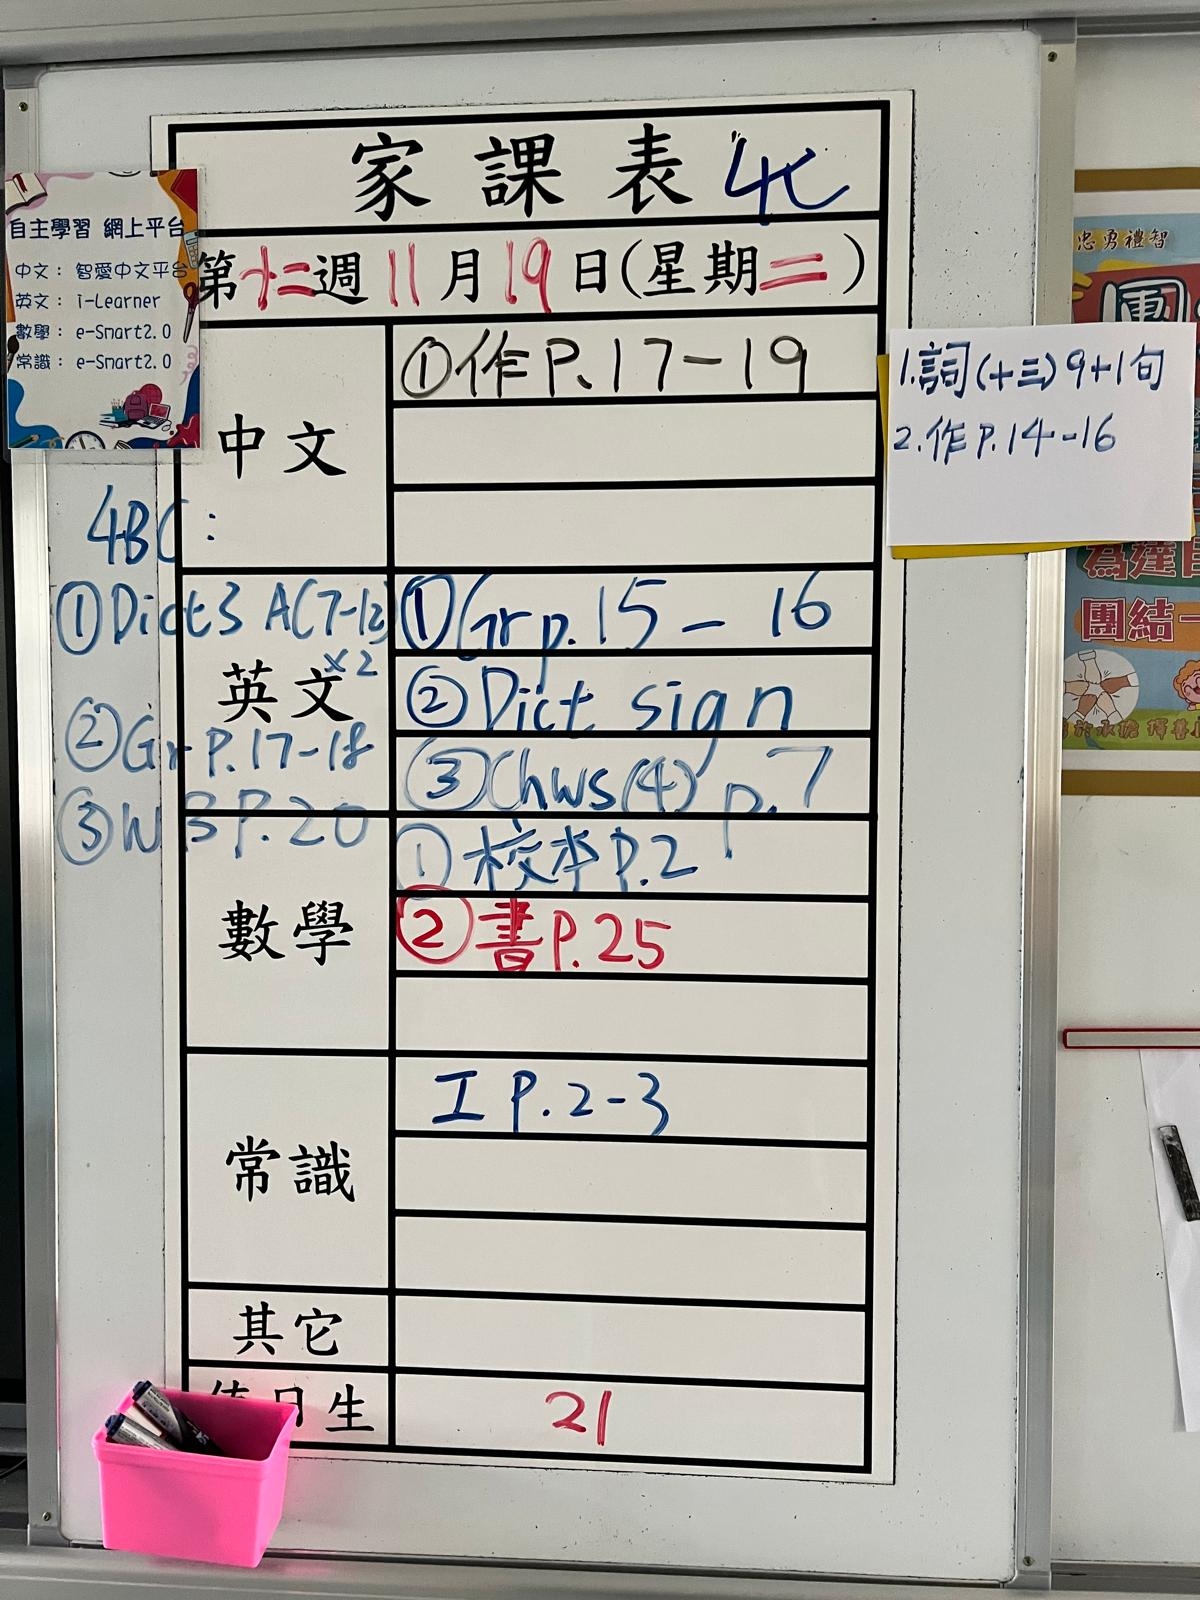 家課表 4C
第十二週 11月19日(星期二)
自主學習 網上平台
中文: 智愛中文平台
英文: i-Learner
數學: e-Smart2.0
常識: e-Smart2.0
中文
①作P.17-19
1.詞(十三)9+1句
2.作P.14-16
4BC:
①Dict3 A(7-12)
×2
②Gr P.17-18
③WB P.20
英文
①Gr p.15-16
②Dict sign
③Chws(4) p.7
數學
①校本P.2
②書P.25
常識
工 P.2-3
其它
日生
21
忠勇禮智
團
為達目
團結一